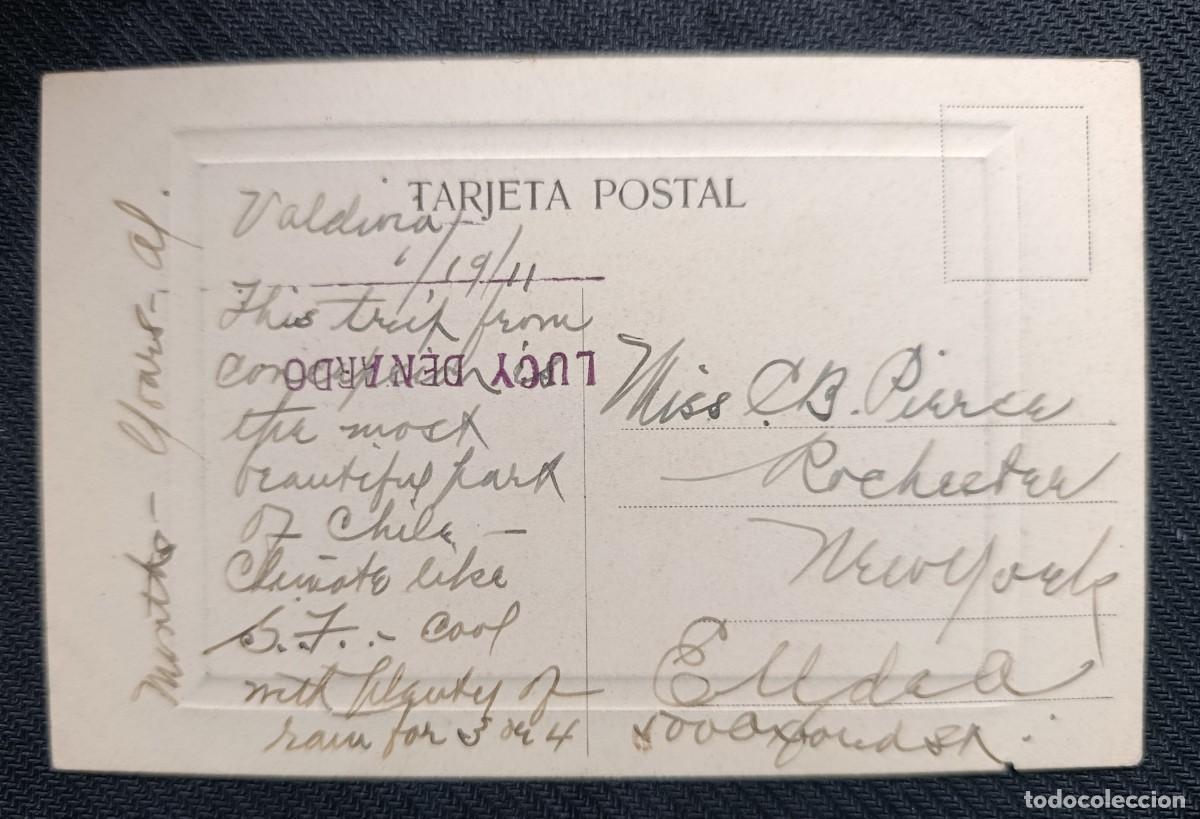 TARJETA POSTAL
Valdivia
1/19/11
This trip from
Concepcion is
the most
beautiful part
of Chile —
Climate like
S.F. - cool
with plenty of
rain for 3 or 4
Months - Yours - Al.
LUCY DENARDO
Miss C.B. Pierce
Rochester
New York
E U de A
500 Oxford St.
todocoleccion